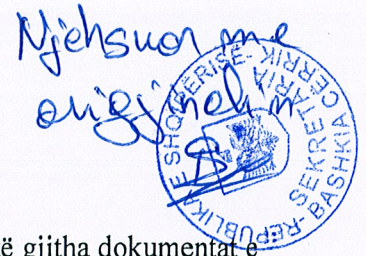 Njehsuar me
origjinalin
REPUBLIKA E SHQIPËRISË
BASHKIA CËRRIK
SEKRETARIA
ë gjitha dokumentat e